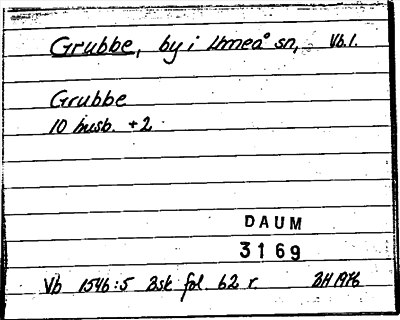 Grubbe, by i Umeå sn, Vb.l.
Grubbe
10 husb. +2
DAUM
3169
Vb 1546:5 Bsk fol 62 r. BH 1976